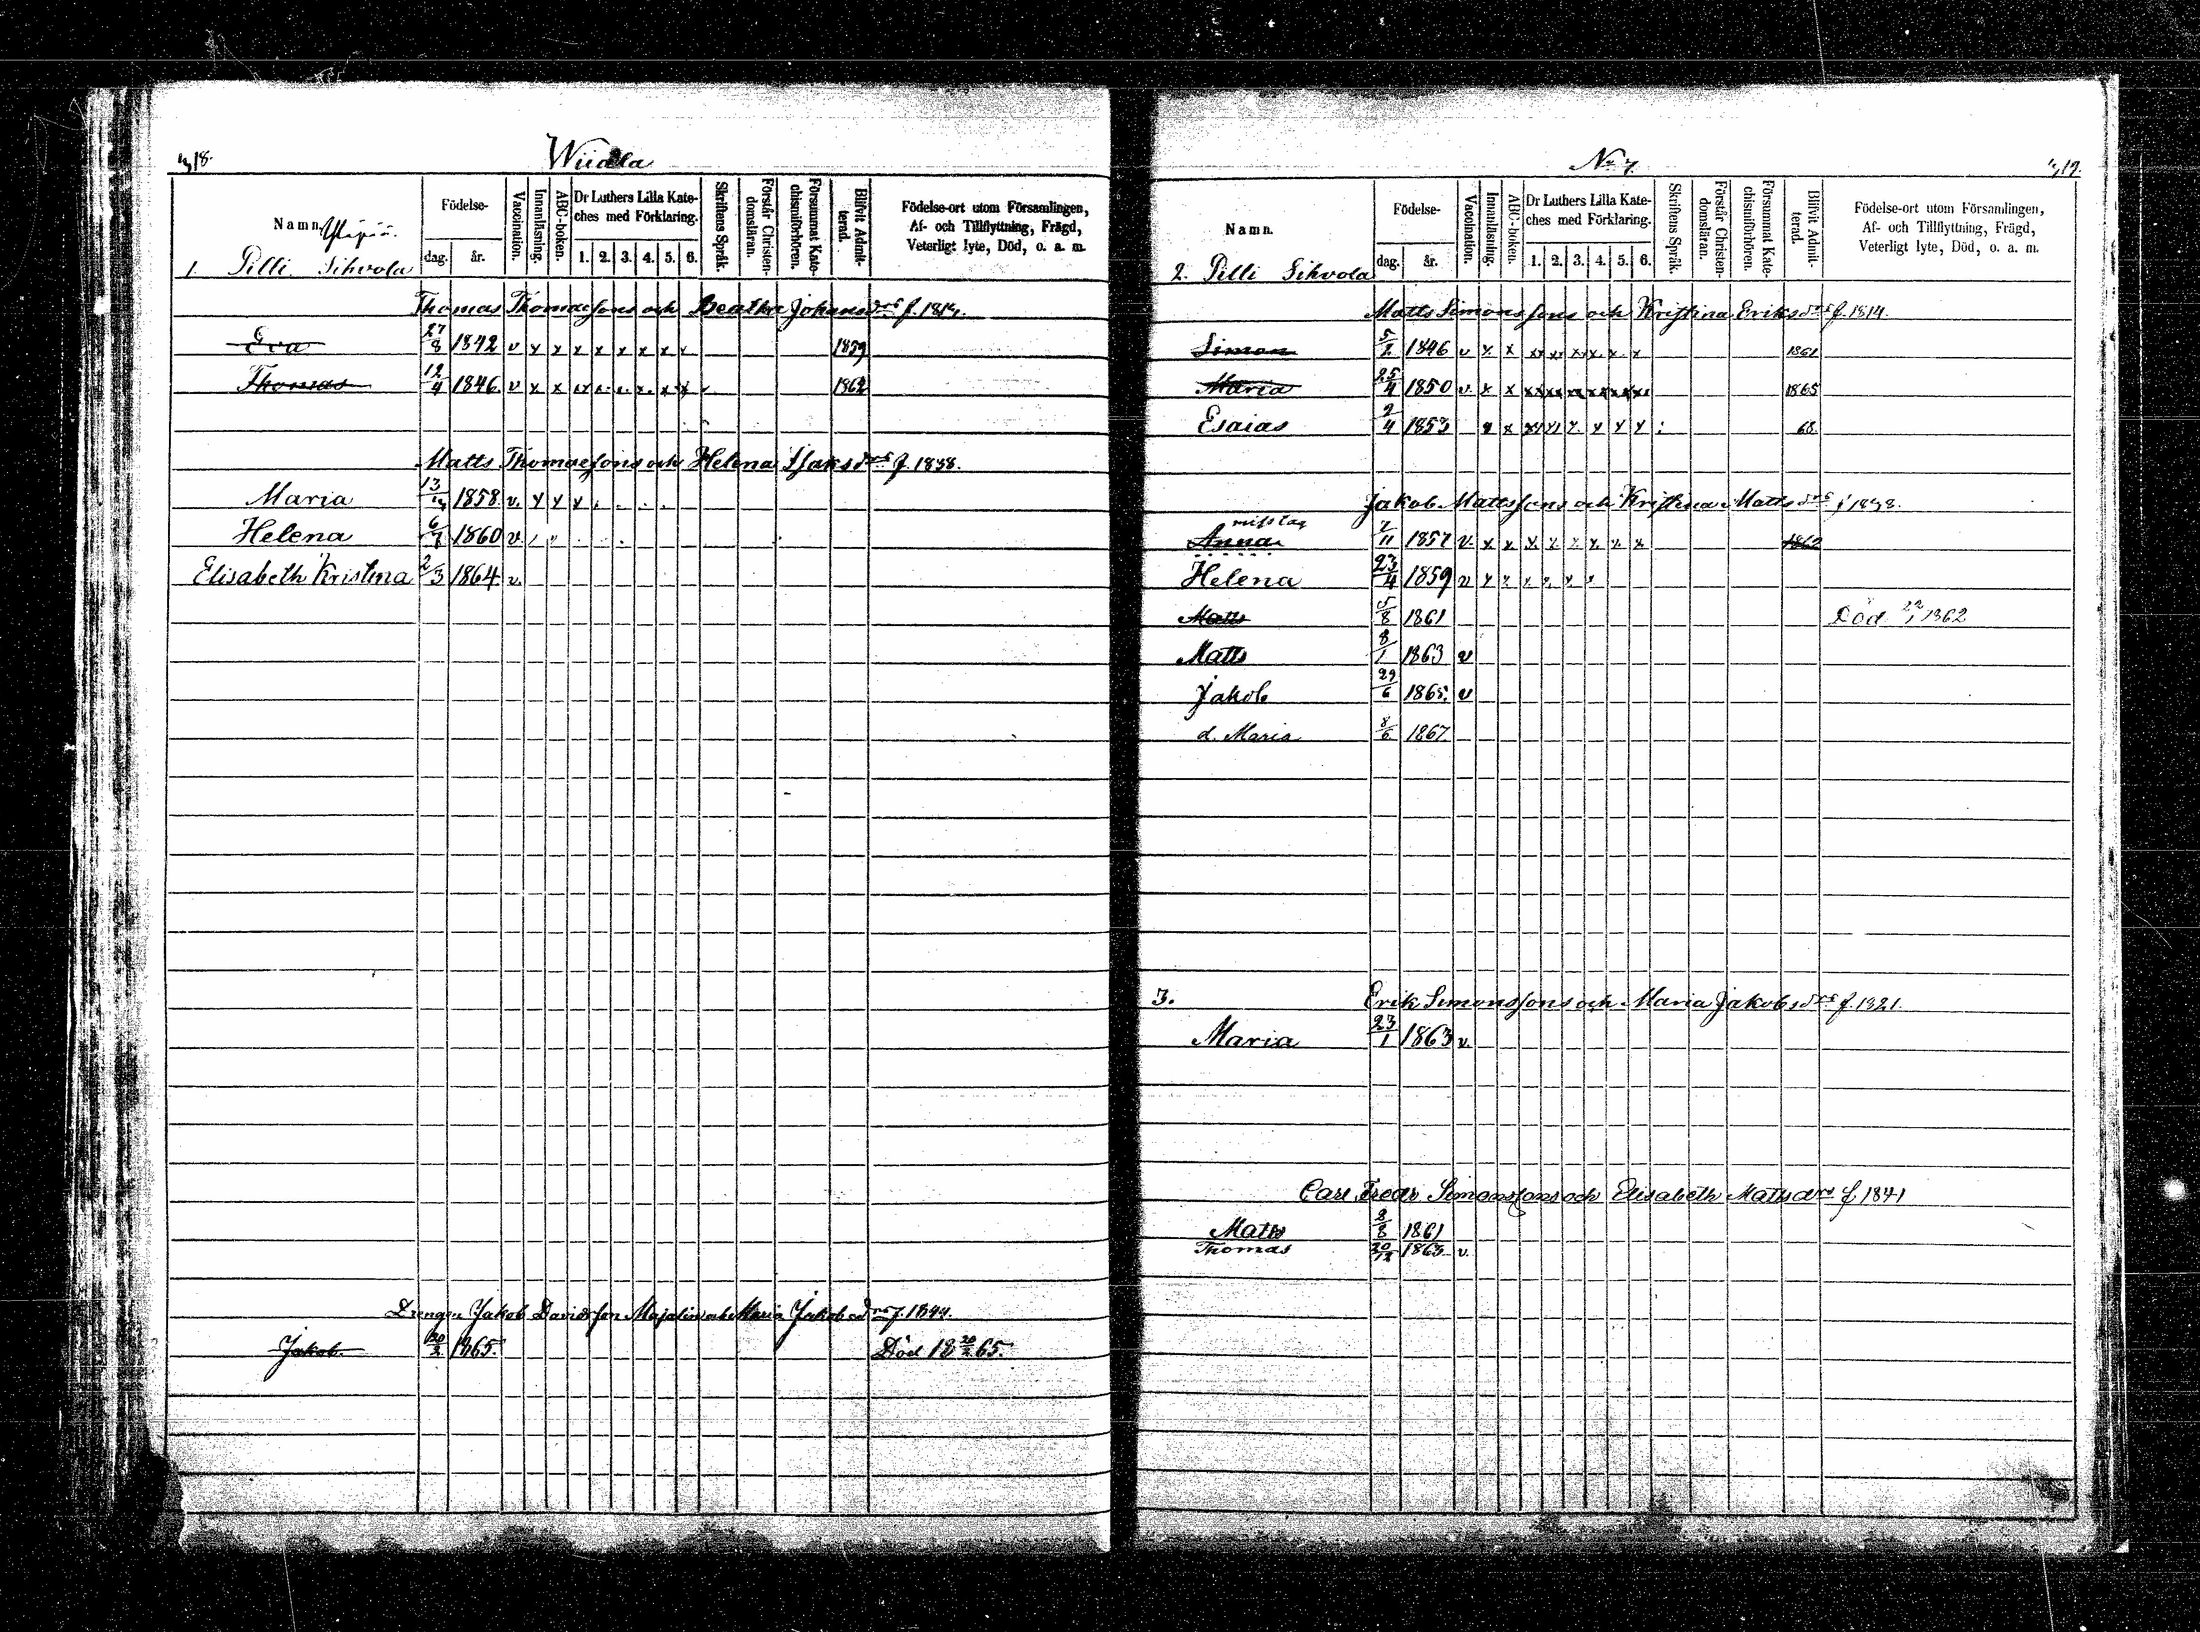 418. Wiiala
Namn. Ylipää.
Födelse-
dag. år.
Vaccination.
Innanläsning.
ABC-boken.
Dr Luthers Lilla Kate-
ches med Förklaring.
1. 2. 3. 4. 5. 6.
Skriftens Språk.
Förstår Christen-
domsläran.
Försummat Kate-
chismiförhören.
Blifvit Admit-
terad.
Födelse-ort utom Församlingen,
Af- och Tillflyttning, Frägd,
Veterligt lyte, Död, o. a. m.
1. Pilli Sihvola
Thomas Thomaesons och Beatha Johansdrs f. 1814.
Eva 27/8 1842 v x x x x x x x x 1859
Thomas 12/4 1846 v x x x x x x x x 1862
Matts Thomaesons och Helena Isaksdrs f. 1838.
Maria 13/4 1858 v. x x x
Helena 6/7 1860 v.
Elisabeth Kristina 2/3 1864 v.
Drengen Jakob Davidsson Majalin och Maria Jakobsdrs f. 1844.
Jakob 20/2 1865. Död 18 20/2 65.
No 7. 419.
Namn.
Födelse-
dag. år.
Vaccination.
Innanläsning.
ABC-boken.
Dr Luthers Lilla Kate-
ches med Förklaring.
1. 2. 3. 4. 5. 6.
Skriftens Språk.
Förstår Christen-
domsläran.
Försummat Kate-
chismiförhören.
Blifvit Admit-
terad.
Födelse-ort utom Församlingen,
Af- och Tillflyttning, Frägd,
Veterligt lyte, Död, o. a. m.
2. Pilli Sihvola
Matts Simonssons och Kristina Eriksdrs f. 1814
Simon 5/2 1846 v x x xx xx xx x x x 1861
Maria 25/4 1850 v. x x xx xx xx xx xx xx 1865
Esaias 2/4 1853 x x xx xx x x x x 68
Jakob Mattssons och Kristina Mattsdrs f
misstag
Anna 7/11 1857 v. x x x x x x x x 1862
Helena 23/4 1859 v x x x x x x
Matts 5/8 1861 Död 22/1 1862
Matts 8/1 1863 v
Jakob 29/6 1865. v
d. Maria 8/6 1867
3. Erik Simonssons och Maria Jakobsdrs f. 1821.
Maria 23/1 1863 v.
Carl Fredr Simonssons och Elisabeth Mattsdrs f 1841
Matts 2/8 1861
Thomas 20/12 1863 v.